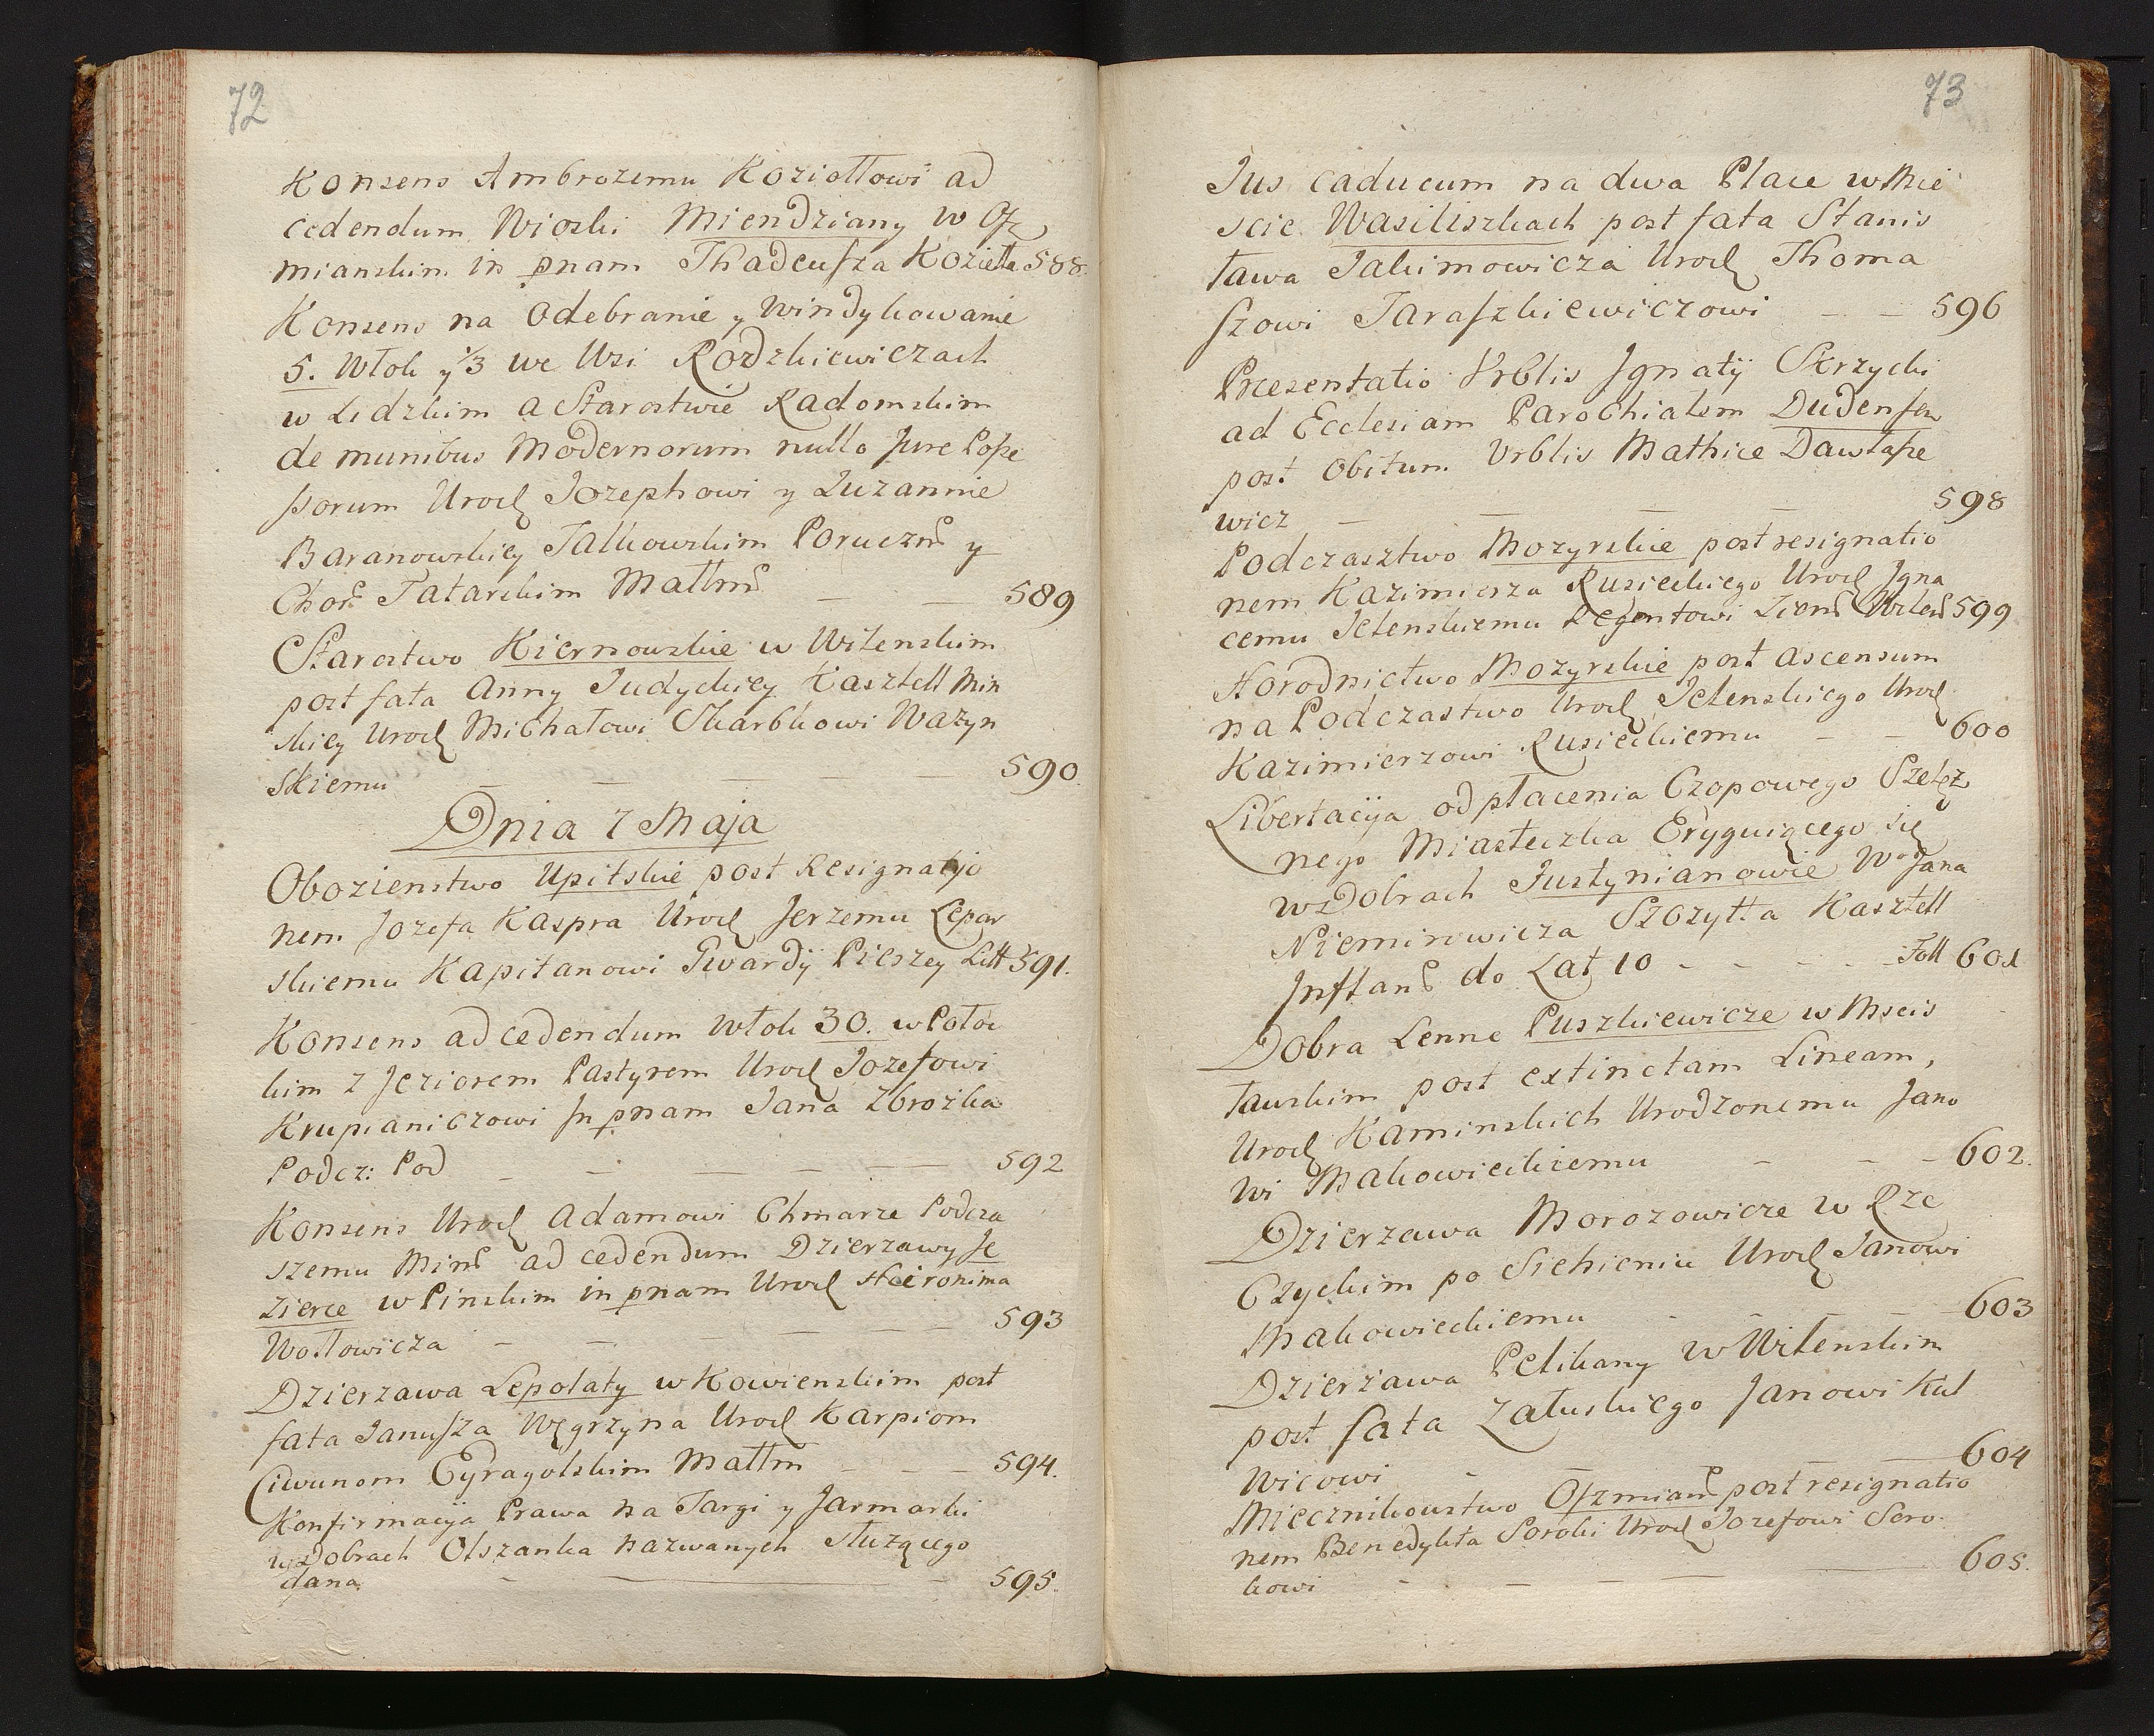 72
Konsens Ambrozemu Koziołłowi ad
cedendum Wioski Miendziany w Osz
mianskim in pnam Thadeusza Koziełła 588.
Konsens na Odebranie y Windykowanie
5. Włok y 1/3 we Wsi Rodzkiewiczach
w Lidzkim a Starostwie Radomskim
de manibus Modernorum nullo Jure Posse
ssorum Urod Jozephowi y Zuzannie
Baranowskiey Talkowskim Poruczn y
Chor Tatarskim Małłm — — 589
Starostwo Kiernowskie w Wilenskim
post fata Anny Judyckiey Kasztell Min
skiey Urod Michałowi Skarbkowi Wazyn
skiemu — — — — — 590.
Dnia 7 Maja
Obozienstwo Upitskie post Resignatio
nem Jozefa Kaspra Urod Jerzemu Lepar
skiemu Kapitanowi Gwardij Pieszey Litt 591.
Konsens ad cedendum Włok 30. w Połoc
kim z Jeziorem Pastyrem Urod Jozefowi
Krupianiczowi in pnam Jana Zbrozka
Podcz: Pod — — — — 592
Konsens Urod Adamowi Chmarze Podcza
szemu Min ad cedendum Dzierzawy Je
zierce w Pinskim in pnam Urod Hieronima
Wołłowicza — — — — — 593
Dzierzawa Lepolaty w Kowienskim post
fata Janusza Węgrzyna Urod Karpiom
Ciwunom Eyragolskim Małłm — — — 594.
Konfirmacyja Prawa na Targi y Jarmarki
w Dobrach Olszanka nazwanych służącego
dana — — — 595.
73
Jus caducum na dwa Place w Mie
scie Wasiliszkach post fata Stanis
ława Jakimowicza Urod Thoma
szowi Taraszkiewiczowi — — 596
Præsentatio Vrblis Jgnatij Skrzycki
ad Ecclesiam Parochialem Dudensem
post Obitum Vrblis Mathiæ Dawlasse
wicz — — — — 598
Podczasztwo Mozyrskie post resignatio
nem Kazimierza Rusieckiego Urod Jgna
cemu Jelenskiemu Regentowi Ziem Wilen 599
Horodnictwo Mozyrskie post ascensum
na Podczastwo Urod Jelenskiego Urod
Kazimierzowi Rusieckiemu — — 600
Libertacija od płacenia Czopowego Szelęż
nego Miasteczka Eryguiącego się
w Dobrach Justynianowie W Jana
Niemirowicza Szczytta Kasztell
Jnflan do Lat 10 - - - - - Foll 601
Dobra Lenne Puszkiewicze w Mscis
ławskim post extinctam Lineam,
Urod Kaminskich Urodzonemu Jano
wi Makowieckiemu — — — 602.
Dzierzawa Morozowicze w Rze
czyckim po Siehieniu Urod Janowi
Makowieckiemu — — — — 603
Dzierzawa Pelikany w Wilenskim
post fata Załuskiego Janowi Kul
wicowi — — 604
Miecznikowstwo Oszmian post resignatio
nem Benedykta Soroki Urod Jozefowi Soro
kowi — — — — 605.